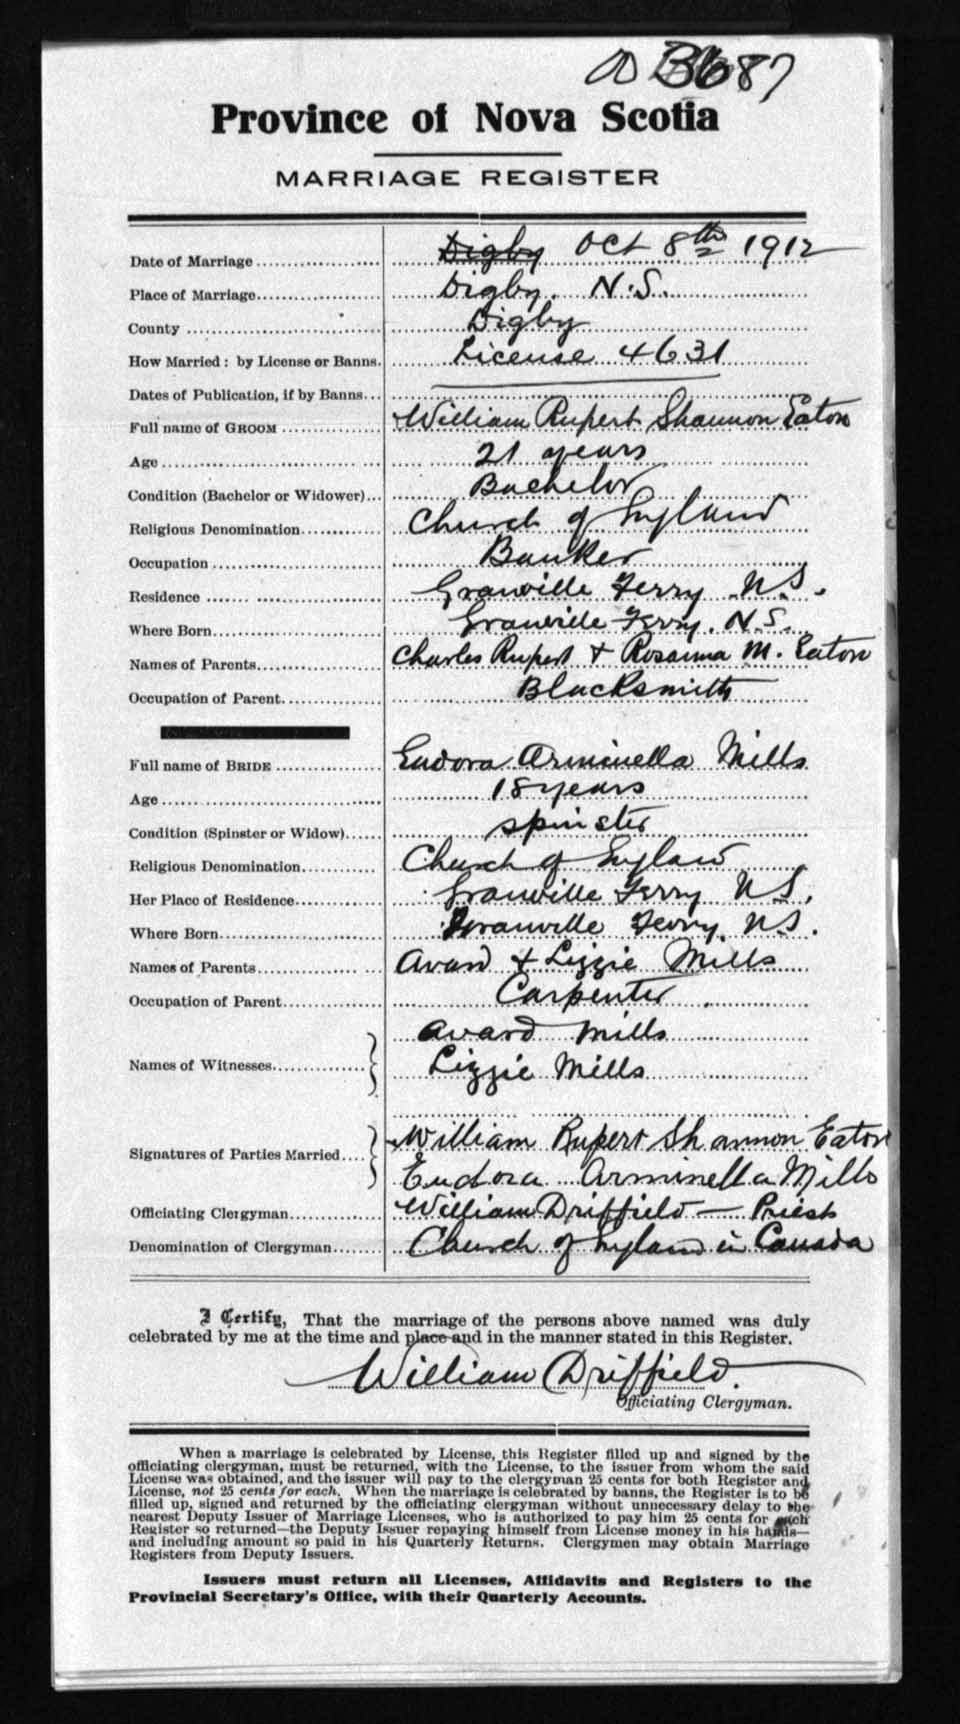 3687
Province of Nova Scotia
MARRIAGE REGISTER
Date of Marriage Digby Oct 8th 1912
Place of Marriage Digby. N.S.
County Digby
How Married: by License or Banns. License 4631
Dates of Publication, if by Banns
Full name of GROOM William Rupert Shannon Eaton
Age 21 years
Condition (Bachelor or Widower) Bachelor
Religious Denomination Church of England
Occupation Banker
Residence Granville Ferry N.S.
Where Born Granville Ferry. N.S.
Names of Parents Charles Rupert + Rosanna M. Eaton
Occupation of Parent Blacksmith
Full name of BRIDE Eudora Arminella Mills
Age 18 years
Condition (Spinster or Widow) spinster
Religious Denomination Church of England
Her Place of Residence Granville Ferry N.S.
Where Born Granville Ferry. N.S.
Names of Parents Avard + Lizzie Mills
Occupation of Parent Carpenter
Avard Mills
Names of Witnesses Lizzie Mills
William Rupert Shannon Eaton
Signatures of Parties Married Eudora Arminella Mills
Officiating Clergyman William Driffield - Priest
Denomination of Clergyman Church of England in Canada
I Certify, That the marriage of the persons above named was duly
celebrated by me at the time and place and in the manner stated in this Register.
William Driffield.
Officiating Clergyman.
When a marriage is celebrated by License, this Register filled up and signed by the
officiating clergyman, must be returned, with the License, to the issuer from whom the said
License was obtained, and the issuer will pay to the clergyman 25 cents for both Register and
License, not 25 cents for each. When the marriage is celebrated by banns, the Register is to be
filled up, signed and returned by the officiating clergyman without unnecessary delay to the
nearest Deputy Issuer of Marriage Licenses, who is authorized to pay him 25 cents for each
Register so returned—the Deputy Issuer repaying himself from License money in his hands—
and including amount so paid in his Quarterly Returns. Clergymen may obtain Marriage
Registers from Deputy Issuers.
Issuers must return all Licenses, Affidavits and Registers to the
Provincial Secretary's Office, with their Quarterly Accounts.